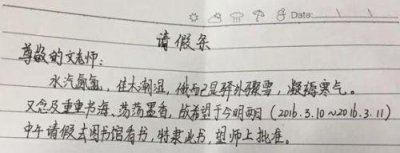 Date:
请假条
尊敬的文老师：
水汽氤氲，佳木潮湿，俄而已是骤雪，凝瑞寒气。
又念及重重书海，荡荡墨香，故希望于今明两日（2016.3.10~2016.3.11）
中午请假去图书馆看书，特隶此书，望师上批准。